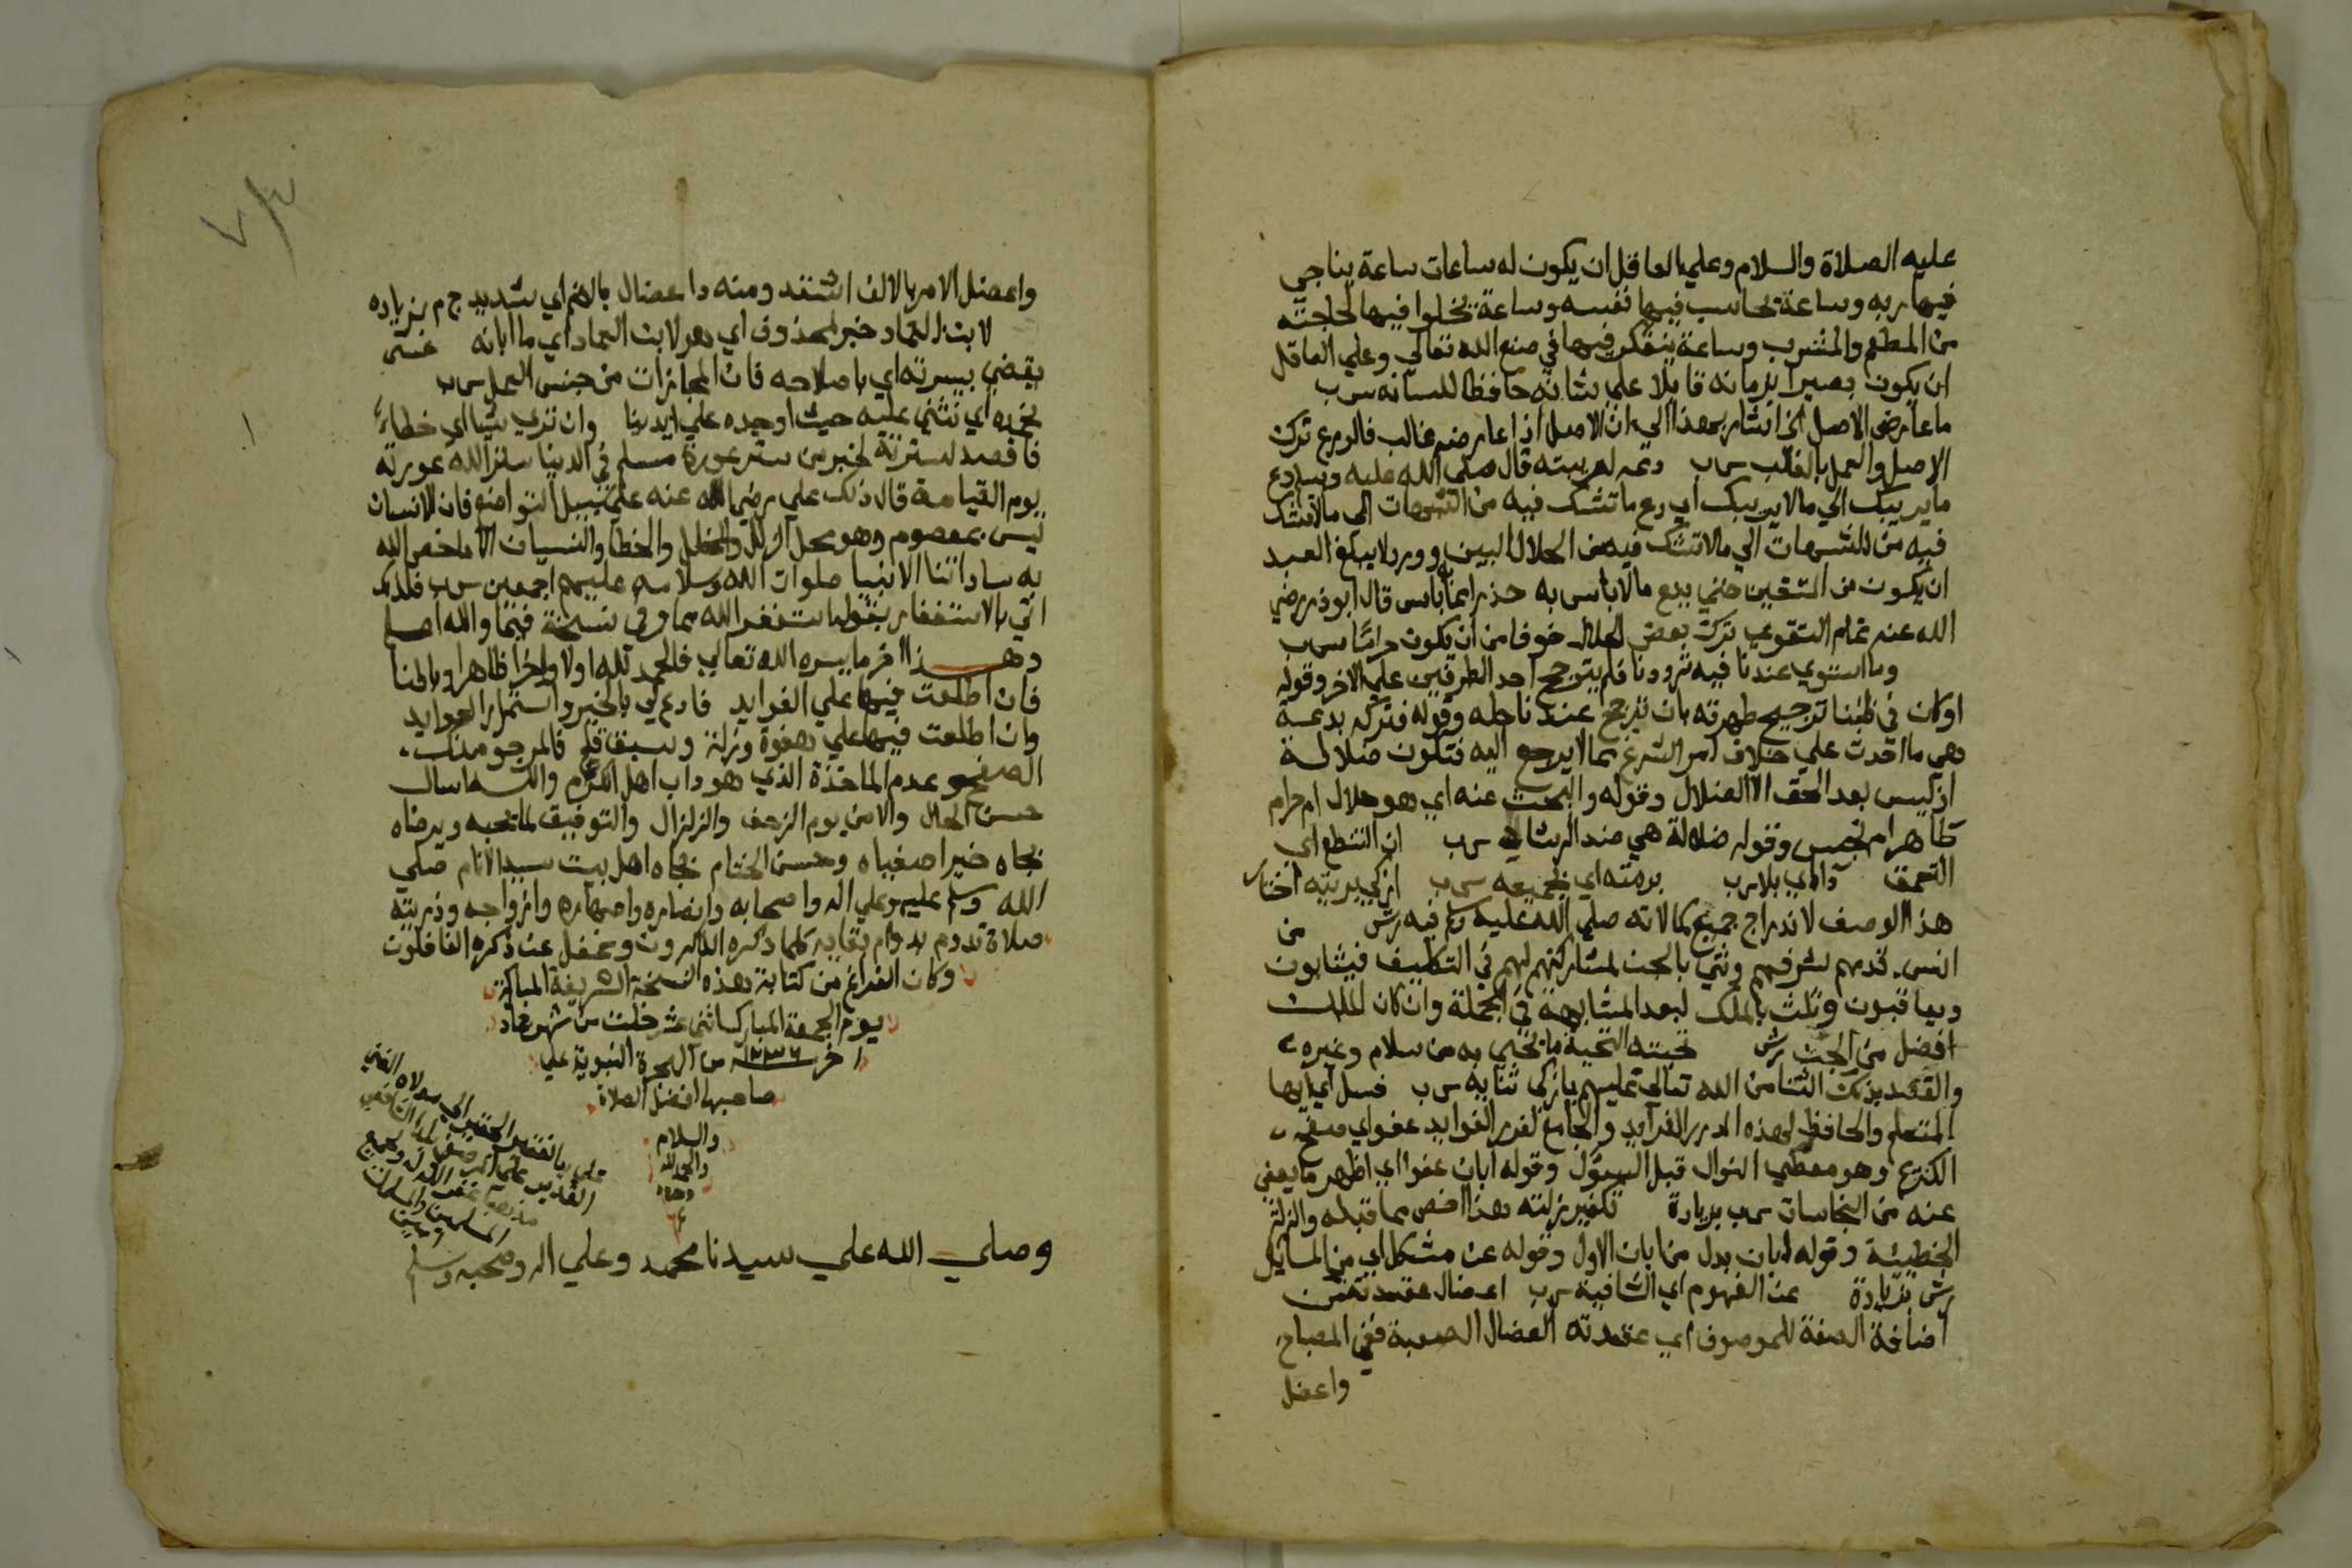 عليه الصلاة والسلام وعلي العاقل ان يكون له ساعات ساعة يناجي
فيها ربه وساعة يحاسب فيها نفسه وساعة يخلوا فيها لحاجته
من المطعم والمشرب وساعة يتفكر فيها في صنع الله تعالي وعلي العاقل
ان يكون بصيرا بزمانه قابلا علي شانه حافظا للسانه
ما عارض الاصل الخ اشار بهذا الي ان الاصل اذا عارضه غالب فالورع ترك
الاصل والعمل بالغالب قال صلي الله عليه وسلم دع
ما يريبك الي مالا يريبك اي دع ما تشك فيه من الشبهات الي مالا تشك
فيه من الشبهات الي مالا تشك فيه من الحلال البين وورد لا يبلغ العبد
ان يكون من المتقين حتي يدع مالا باس به حذرا مما به باس قال ابو ذر رضي
الله عنه تمام التقوي ترك بعض الحلال خوفا من ان يكون حراما
وما استوي عندنا فيه ترددنا فلم يترجح احد الطرفين علي الاخر وقوله
او كان في ظننا ترجيح طهرته بان ترجح عندنا حله وقوله فتركه بدعة
هي ما احدث علي خلاف امر الشرع مما لا يرجع اليه فتكون ضلالة
اذ ليس بعد الحق الا الضلال وقوله والبحث عنه اي هو حلال ام حرام
طاهر ام نجس وقوله ضلالة هي ضد الرشاد ان التنطع اي
التعمق برمته اي بجميعه ازكي بريته اختار
هذا الوصف لاندراج جميع كمالاته صلي الله عليه وسلم فيه من
انس قدمهم لشرفهم وثني بالجن لمشاركتهم لهم في التكليف فيثابون
ويعاقبون وثلث بالملك لبعد المشابهة في الجملة وان كان الملك
افضل من الجن تحيته التحية ما يحيي به من سلام وغيره
والقصد بذلك الثنا من الله تعالي عليهم بازكي ثنايه فسل اي ايها
المتعلم والحافظ لهذه الدرر الفرايد والجامع لغرر الفوايد عفو اي صفح
الكريم وهو معطي النوال قبل السؤل وقوله ابان عفوا اي اظهر ما يعفي
عنه من النجاسات بزيادة تكفير زلته هذا اخص مما قبله والزلة
الخطيئة وقوله ابان بدل من ابان الاول وقوله عن مشكل اي من المسايل
بزيادة عن الفهوم اي الشافية اعضال عقدته من
اضافة الصفة للموصوف اي عقدته العضال الصعبة ففي المصباح
واعضل
واعضل الامر بالالف اشتد ومنه داء عضال بالضم اي شديد بزيادة
لابن العماد خبر لمحذوف اي هو لابن العماد اي ما ابانه عسى
يقضي بيسرته اي باصلاحه فان المجازات من جنس العمل
بخيره اي تثني عليه حيث اوجده علي ايدينا وان تري شيا اي خطاء
فاقصد لسترته لخبر من ستر عورة مسلم في الدنيا ستر الله عورته
يوم القيامة قال ذلك علي رضي الله عنه علي سبيل التواضع فان الانسان
ليس بمعصوم وهو محل الزلل والخلل والخطا والنسيان الا ما خص الله
به ساداتنا الانبيا صلوات الله وسلامه عليهم اجمعين فلذلك
اتي بالاستغفار بقوله استغفر الله مما وفي نسخة فيما والله اعلم
وهذا اخر ما يسره الله تعالي فالحمد لله اولا واخرا ظاهرا وباطنا
فان اطلعت فيها علي الفوايد فادع لي بالخير واستمطر العوايد
وان اطلعت فيها علي هفوة وزلة وسبق قلم فالمرجو منك
الصفح وعدم الماخذة الذي هو داب اهل الكرم والله اسال
حسن الحال والامن يوم الزحف والزلزال والتوفيق لما يحبه ويرضاه
بجاه خير اصفياه وحسن الختام بجاه اهل بيت سيد الانام صلي
الله وسلم عليه وعلي اله واصحابه وانصاره واصهاره وازواجه وذريته
صلاة تدوم بدوام بقايه كلما ذكره الذاكرون وغفل عن ذكره الغافلون
وكان الفراغ من كتابة هذه النسخة الشريفة المباركة
يوم الجمعة المبارك اثني عشر خلت من شهر جماد
اخر من الهجرة النبوية علي
صاحبها افضل الصلاة
والسلام
والحمد لله
وحده
الفقير الحقير الي مولاه الغني
القدير
غفر الله له ولجميع
المسلمين والمسلمات
وصلي الله علي سيدنا محمد وعلي اله وصحبه وسلم